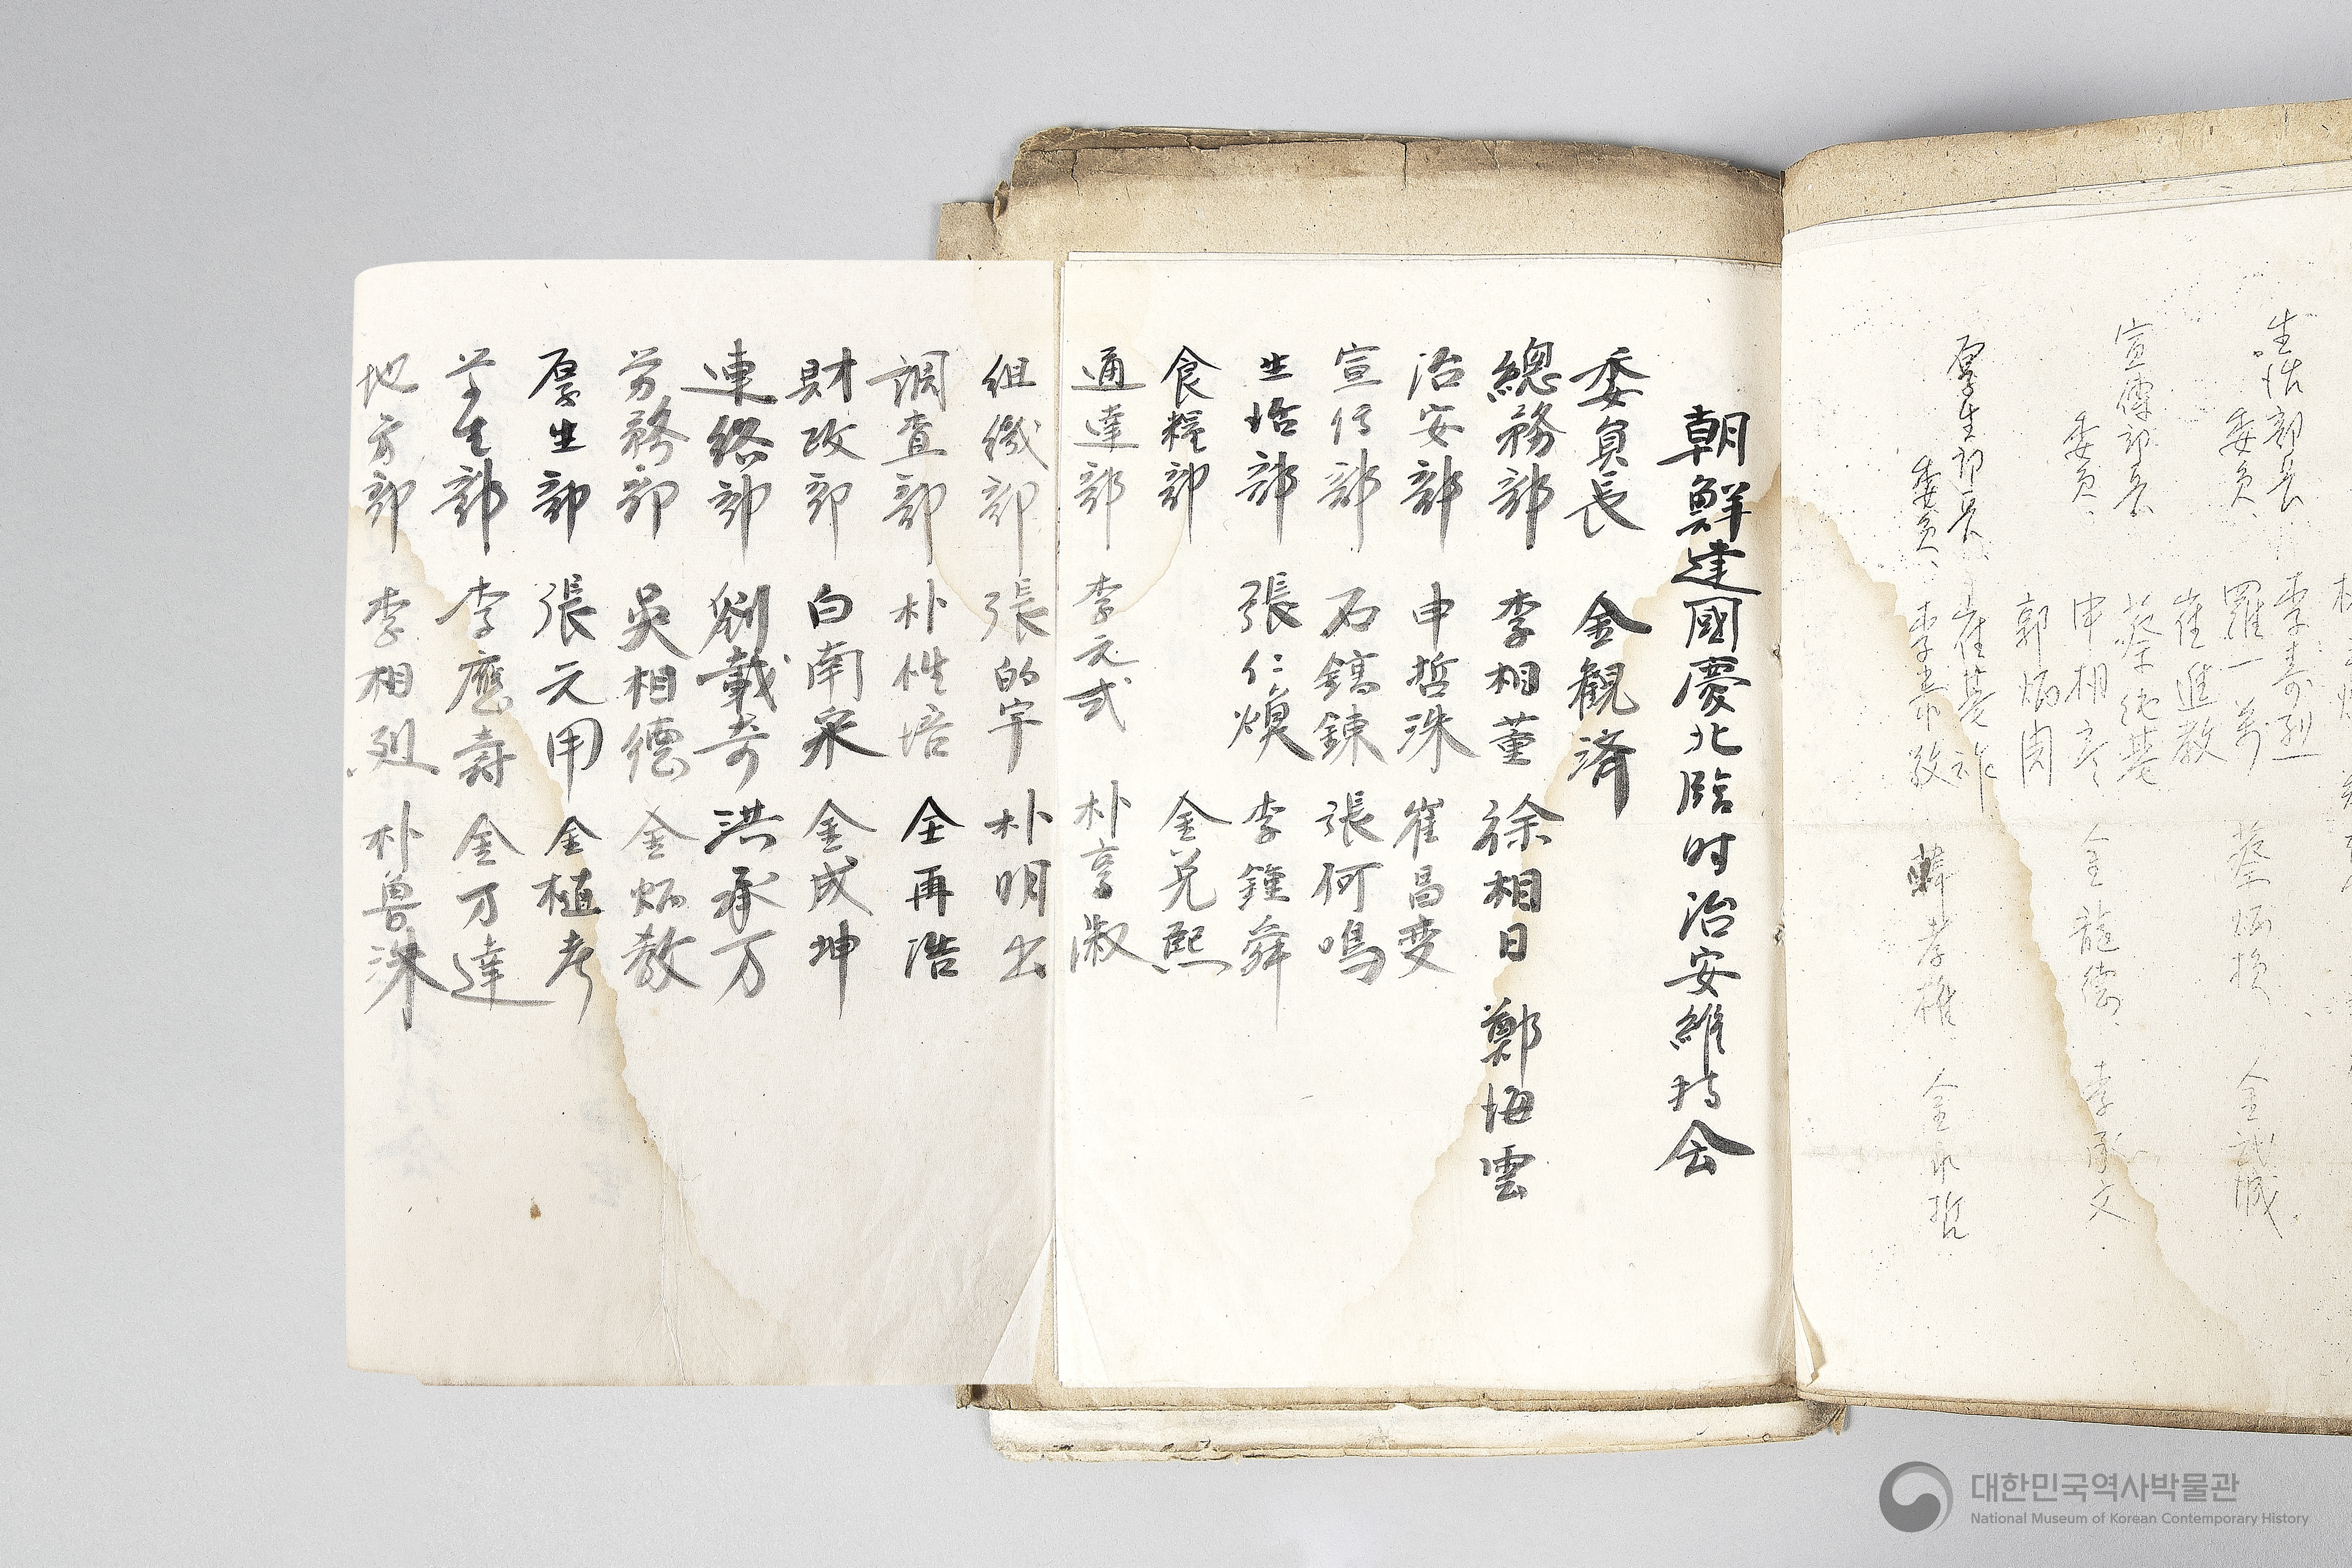 生活部長 李壽烈
委員 羅一萬 蔡炳煥 金誠城
崔進敎
宣傳部長 蔡純基
委員 申相彦 金龍德 李承文
郭炳周
厚生部長 崔基祚
委員 韓孝雄 金 哲
朝鮮建國慶北臨时治安維持会
委員長 金觀済
總務部 李相董 徐相日 鄭海雲
治安部 申哲洙 崔昌燮
宣伝部 石鎬錬 張何鳴
生活部 張仁煥 李鍾舜
食糧部 金羌熙
通達部 李元弍 朴亨淑
組織部 張的宇 朴明出
調査部 朴性培 全再浩
財政部 白南宋 金成坤
連絡部 劉載奇 洪承万
労務部 吳相德 金炳敎
厚生部 張元用 金植考
学生部 李應壽 金万達
地方部 李相烈 朴魯洙
대한민국역사박물관
National Museum of Korean Contemporary History